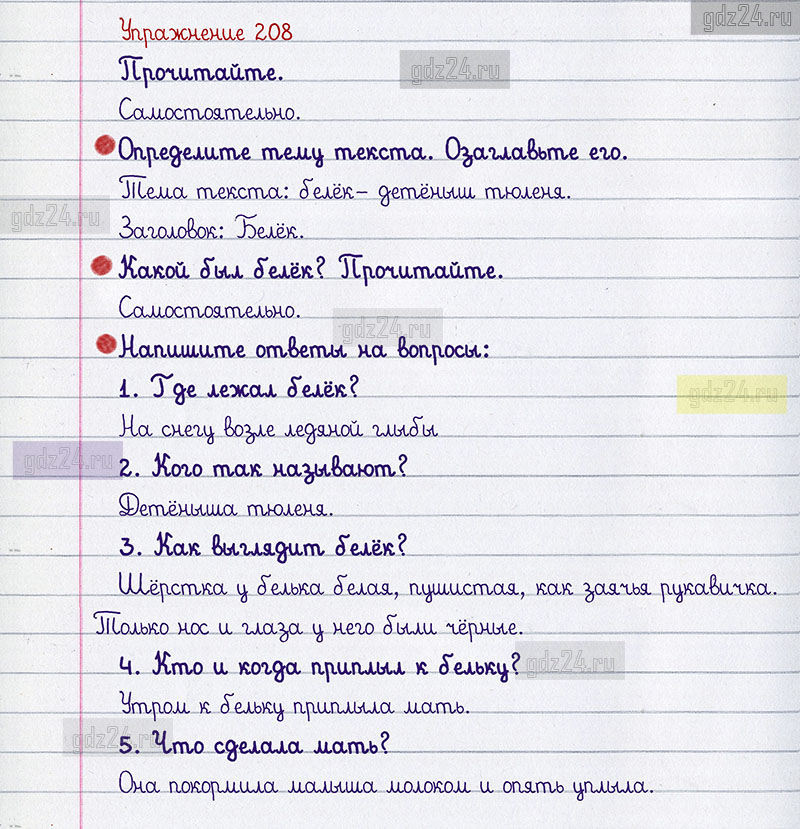 gdz24.ru
Упражнение 208
Прочитайте.
gdz24.ru
Самостоятельно.
Определите тему текста. Озаглавьте его.
Тема текста: белёк– детёныш тюленя.
gdz24.ru
Заголовок: Белёк.
Какой был белёк? Прочитайте.
Самостоятельно.
gdz24.ru
Напишите ответы на вопросы:
1. Где лежал белёк?
gdz24.ru
На снегу возле ледяной глыбы
gdz24.ru
2. Кого так называют?
Детёныша тюленя.
3. Как выглядит белёк?
Шёрстка у белька белая, пушистая, как заячья рукавичка.
Только нос и глаза у него были чёрные.
4. Кто и когда приплыл к бельку?
gdz24.ru
Утром к бельку приплыла мать.
gdz24.ru
5. Что сделала мать?
Она покормила малыша молоком и опять уплыла.